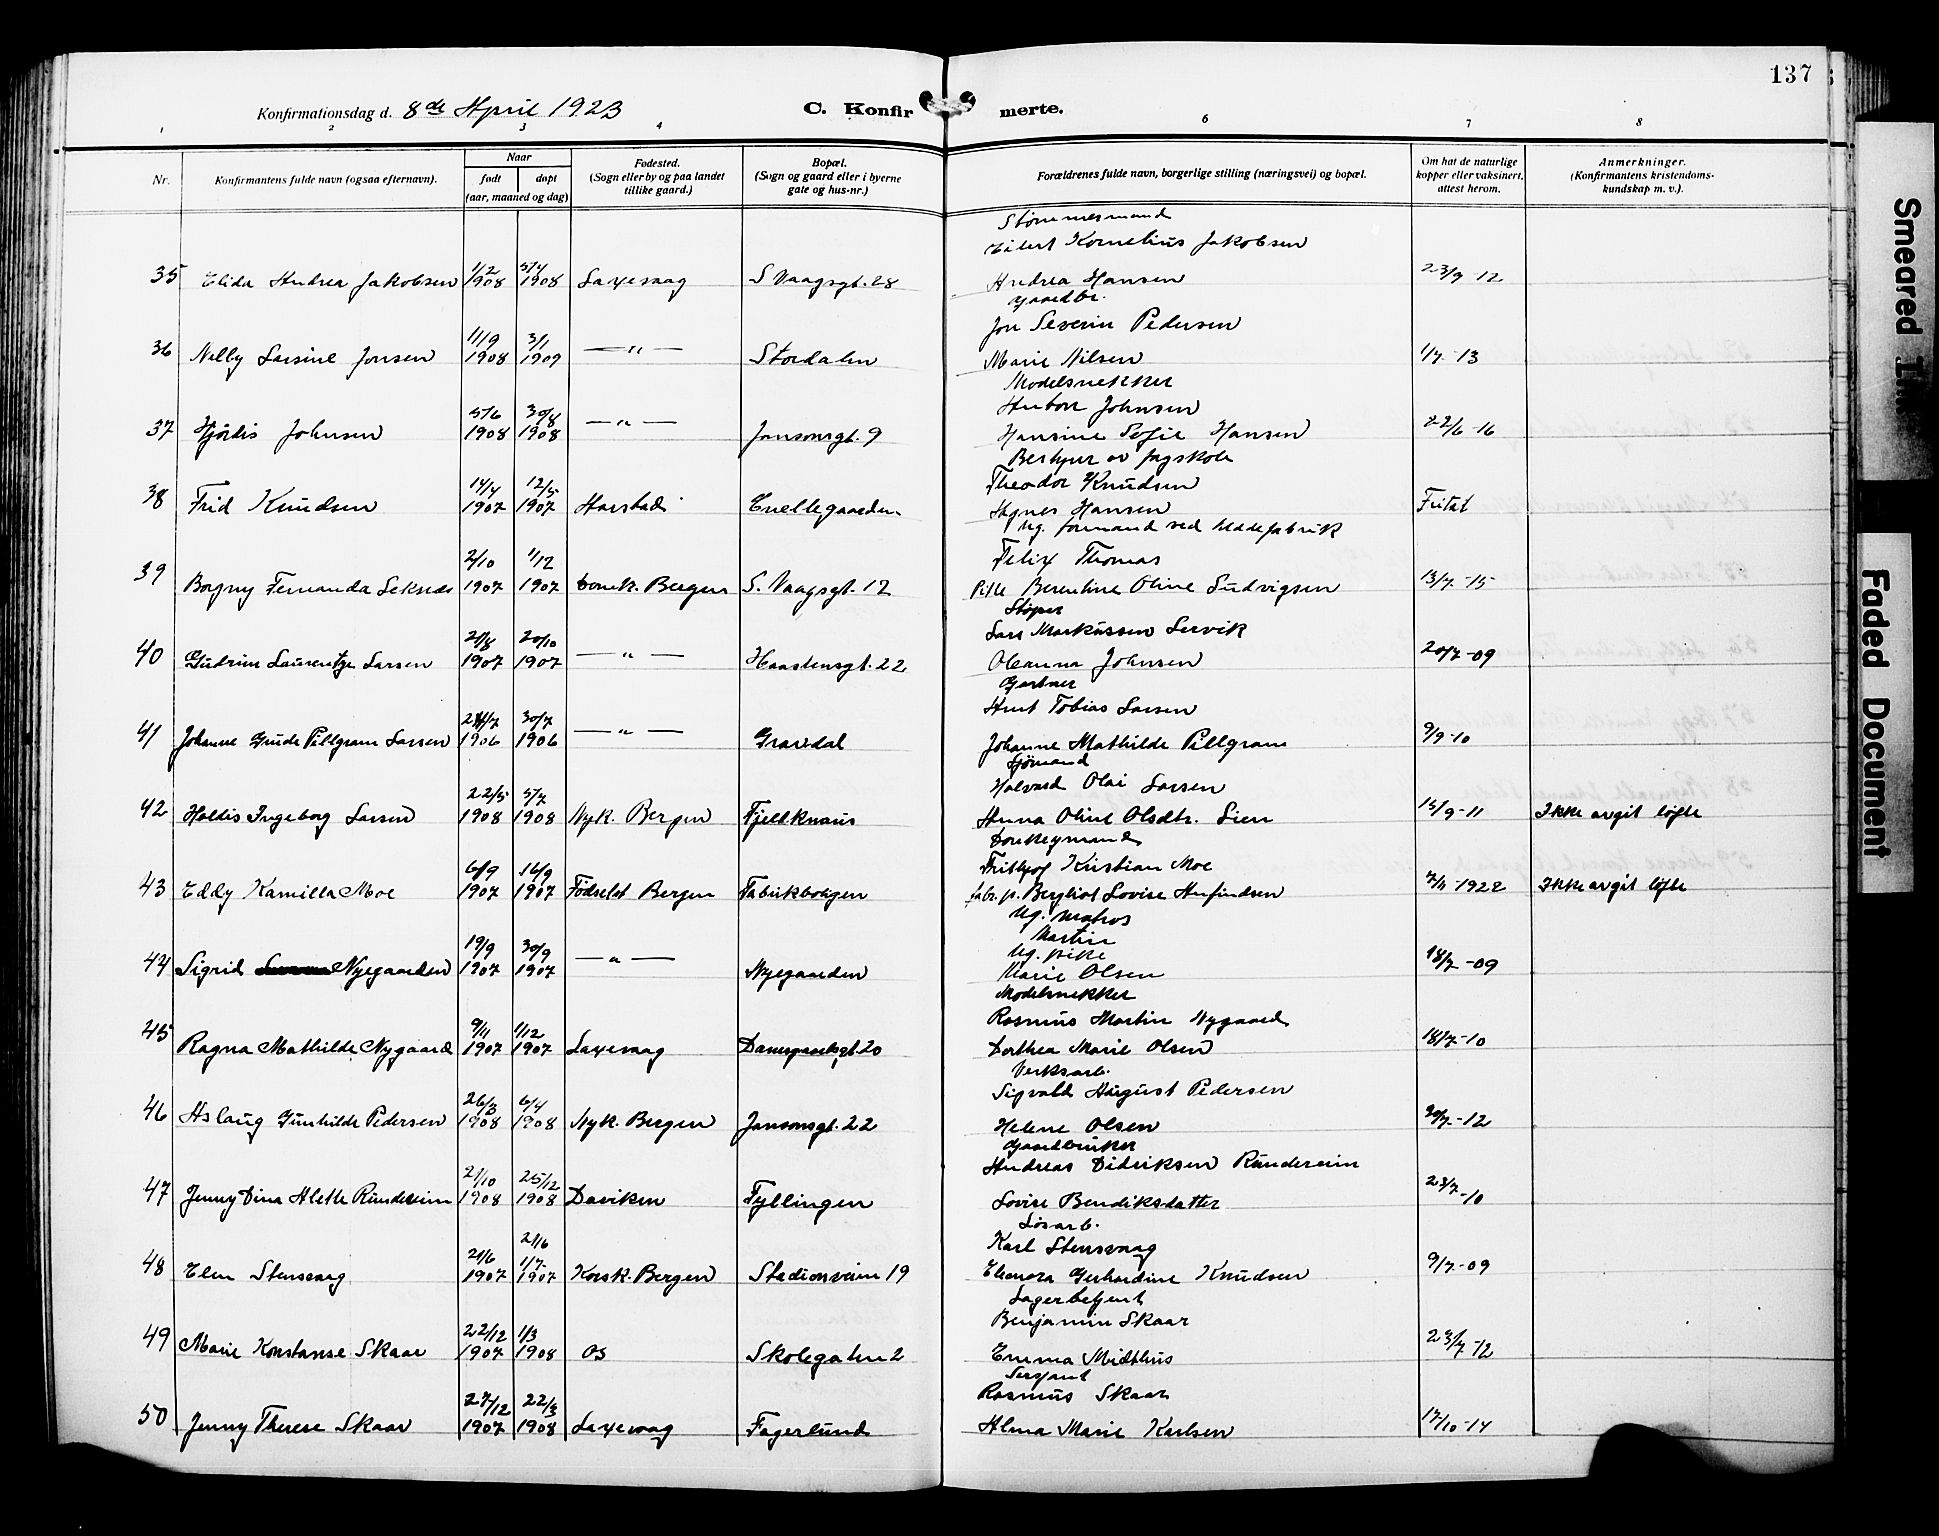 137
Konfirmationsdag d. 8de April 1923 C. Konfirmerte.
1 2 3 4 5 6 7 8
Nr. Konfirmantens fulde navn (ogsaa efternavn). Naar født døpt (aar, maaned og dag) Fødested. (Sogn eller by og paa landet tillike gaard.) Bopæl. (Sogn og gaard eller i byerne gate og hus-nr.) Forældrenes fulde navn, borgerlige stilling (næringsvei) og bopæl. Om hat de naturlige kopper eller vaksinert, attest herom. Anmerkninger. (Konfirmantens kristendomskundskap m. v.).
Stømmesmand
Eilert Kornelius Jakobsen
35 Elida Andrea Jakobsen 1/2 1908 5/4 1908 Laxevaag S Vaagsgt. 28 Andrea Hansen 23/9-12
Gaardbr.
Jon Severin Pedersen
36 Nelly Larsine Jonsen 11/9 1908 3/1 1909 — " — Stordalen Marie Nilsen 1/7-13
Modelsnekker
Anton Johnsen
37 Hjördis Johnsen 5/6 1908 30/8 1908 — " — Jansonsgt. 9 Hansine Sofie Hansen 22/6-16
Bestyrer av fagskole
Theodor Knudsen
38 Frid Knudsen 14/4 1907 12/5 1907 Harstad Agnes Hansen Fritat
Ug. formand ved
Felix Thomas
39 Borgny Fernanda 2/10 1907 1/12 1907 Domk. Bergen S. Vaagsgt. 12 Pike Berentine Oline Ludvigsen 13/7-15
Støper
Lars Markussen Lervik
40 Gudrun Laurentze Larsen 21/8 1907 20/10 1907 — " — Haastensgt. 22 Oleanna Johnsen 20/7-09
Gartner
Anut Tobias Larsen
41 Johanne Gude Pillgram Larsen 1906 30/7 1906 — " — Gravdal Johanne Mathilde Pillgram 9/9-10
Sjømand
Halvard Olai Larsen
42 Holdis Ingeborg Larsen 22/5 1908 5/7 1908 Nyk. Bergen Fjeldknaus Anna Oline Olsdtr. Lien 15/9-11 Ikke avgit løfte
Donkeymand
Fritjof Kristian Moe
43 Eddy Kamilla Moe 6/9 1907 14/9 1907 Fødselst Bergen Fabrikboligen fabr. p. Bergliot Lovise Anfindsen 7/11-1922 Ikke avgit løfte
Ug. matros
Martin
Ug. pike
44 Sigrid Nyegaarden 19/9 1907 30/9 1907 — " — Nyegaarden Marie Olsen 18/7-09
Modelsnekker
Rasmus Martin Nygaard
45 Ragna Mathilde Nygaard 9/11 1907 1/12 1907 Laxevaag Damsgaardsgt. 20 Dorthea Marie Olsen 18/7-10
Verksarb.
Sigvald August Pedersen
46 Aslaug Gunhilde Pedersen 26/3 1908 6/4 1908 Nyk. Bergen Jansonsgt. 22 Helene Olsen 30/7-12
Gaardbruker
Andreas Didriksen Rundereim
47 Jenny Dina Alette Rundereim 21/10 1908 25/12 1908 Daviken Fyllingen Lovise Bendiksdatter 23/7-10
Løsarb.
Karl Stensvaag
48 Elen Stensvaag 21/6 1907 21/6 1/7 1907 Korsk. Bergen Stadionveien 19 Eleonora Gerhardine Knudsen 9/7-09
Lagerbetjent
Benjamin Skaar
49 Marie Konstanse Skaar 22/12 1907 1/3 1908 Os Skolegaten 2 Emma Midthus 23/7-12
Sersjant
Rasmus Skaar
50 Jenny Therese Skaar 27/12 1907 22/3 1908 Laxevaag Fagerlund Alma Marie Karlsen 17/10-14
Smeared Ink
Faded Document